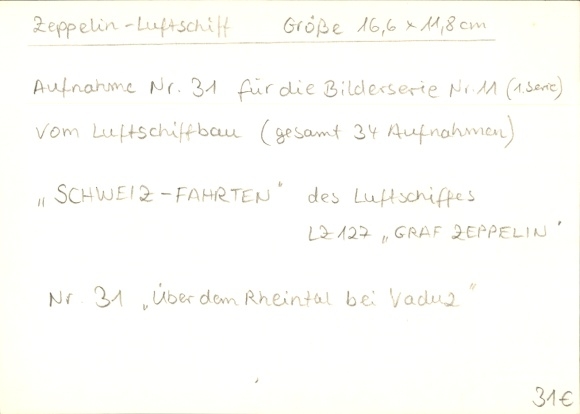 Zeppelin-Luftschiff Größe 16,6 x 11,8 cm
Aufnahme Nr. 31 für die Bilderserie Nr. 11 (1. Serie)
vom Luftschiffbau (gesamt 34 Aufnahmen)
„SCHWEIZ-FAHRTEN" des Luftschiffes
LZ 127 „GRAF ZEPPELIN"
Nr. 31 „Über dem Rheintal bei Vaduz"
31 €